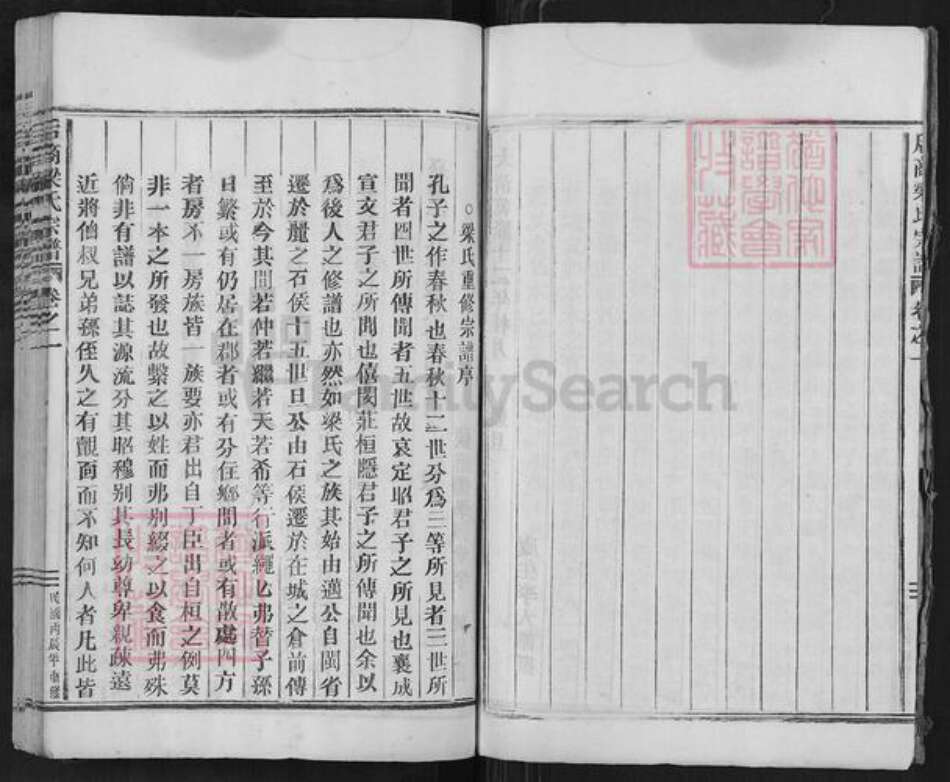 梁氏重修宗譜序
孔子之作春秋也春秋十二世分爲三等所見者三世所
聞者四世所傳聞者五世故哀定昭君子之所見也襄成
宣文君子之所聞也僖閔莊桓隱君子之所傳聞也余以
爲後人之修譜也亦然如梁氏之族其始由邁公自閩省
遷於麗之石侯十五世旦公由石侯遷於在城之倉前傳
至於今其間若仲若繼若天若希等行派繩也弗替子孫
日繁或有仍居在郡者或有分住鄉間者或有散處四方
者房不一房族皆一族要亦君出自丁臣出自桓之例莫
非一本之所發也故繫之以姓而弗别綴之以食而弗殊
倘非有譜以誌其源流分其昭穆别其長幼尊卑親疎遠
近將伯叔兄弟孫侄久之有覿面而不知何人者凡此皆
梁氏宗譜 卷之一
民國丙辰年重修
梁氏宗譜 卷之一
FamilySearch